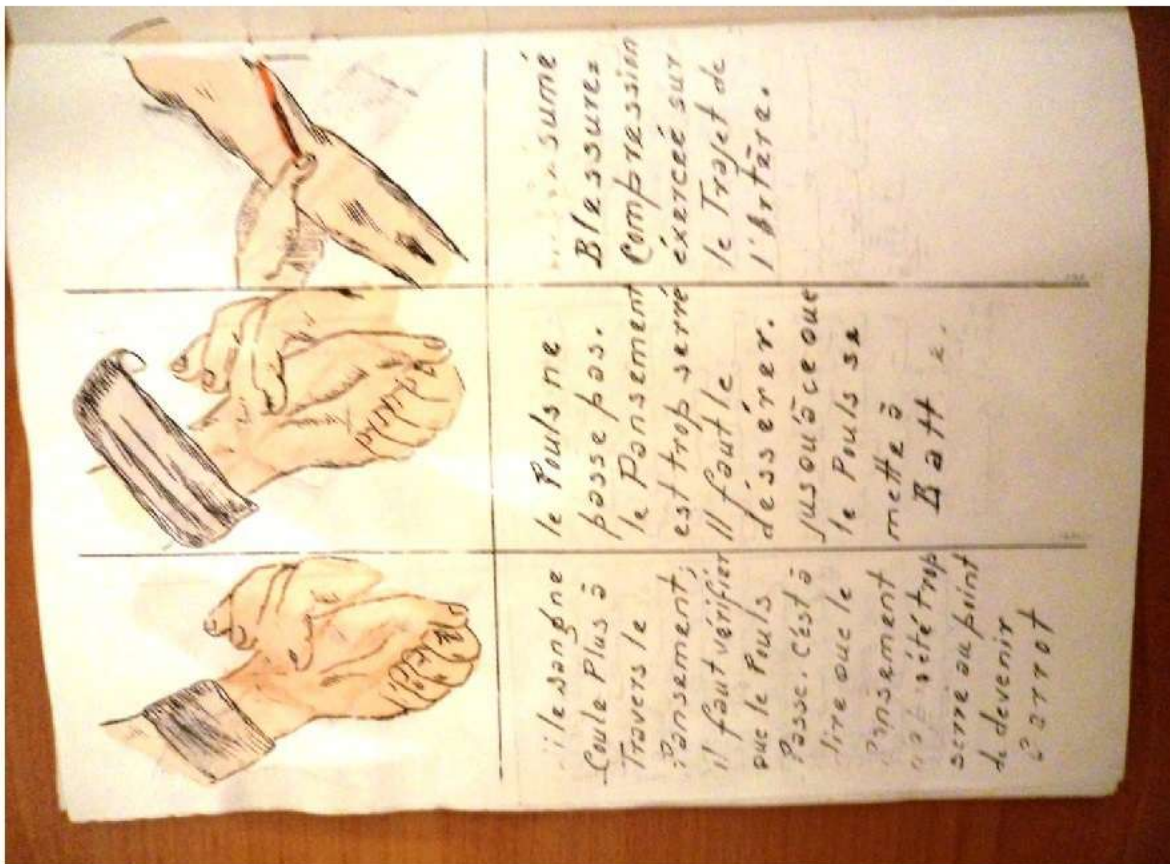 le sang ne
Coule Plus à
Travers le
Pansement;
il faut vérifier
que le Pouls
Passe. C'est à
dire que le
Pansement
été trop
serré au point
de devenir
Garrot
le Pouls ne
passe pas.
le Pansement
est trop serré
Il faut le
déssérer.
jusqu'à ce que
le Pouls se
mette à
Batt e.
sumé
Blessure=
Compression
éxerceé sur
le Trajet de
l'Artère.